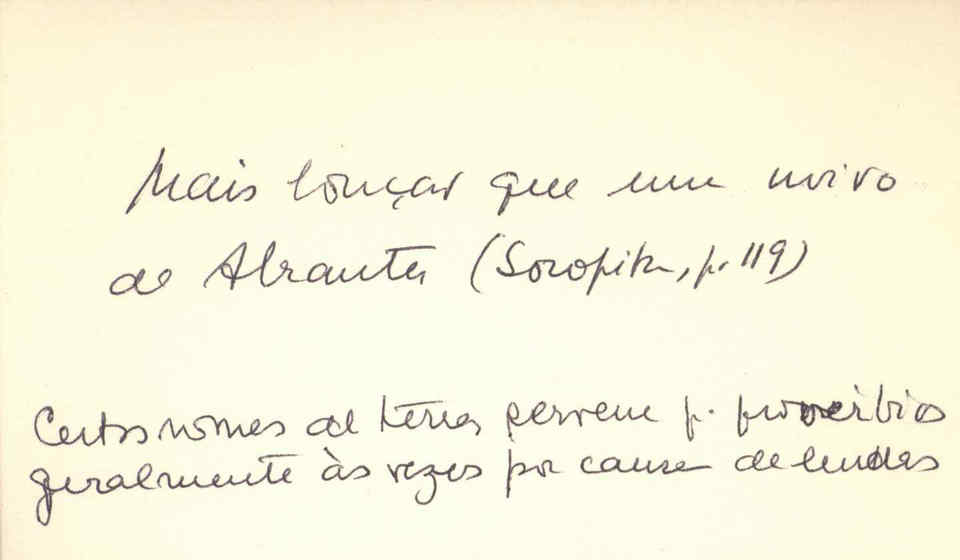 Mais louçar que um noivo
de Abrantes (Soropita, p. 119)
Certos nomes de terras servem p. provérbios
geralmente às vezes por causa de lendas